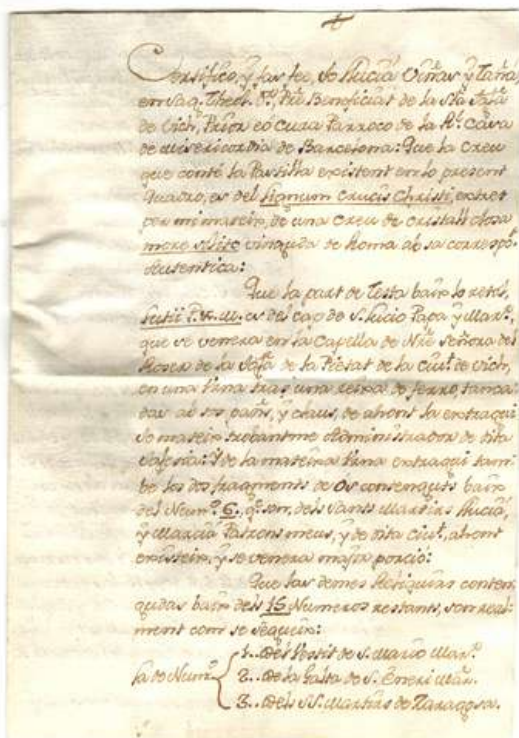 Certifico, y fas fee, Jo Lluciá Viñas y
en Sag. Theol. Dr., Pre. Beneficiat de la Sta.
de Vich, Prior eó Cura Parroco de la Rl. Casa
de Misericordia de Barcelona: Que la Creu
que conté la Pastilla existent en lo present
Quadro, es del Lignum Crucis Christi, extret
per mi mateix, de una Creu de cristall closa
more solito vinguda de Roma ab sa corresp.t
Autentica:
Que la part de Testa baix lo retol,
P. M. es del cap de S. Lucio Papa y Mar.r,
que se venera en la Capella de Nra Señora del
Roser de la Igla. de la Pietat de la Ciut. de Vich,
en una Urna tras una reixa de ferro, tanca-
das ab sos pañs, y claus, de ahont la extraguí
Jo mateix trobantme Administrador de dita
Iglesia: Y de la mateixa Urna extraguí tam-
be los dos fragments de Os contenguts baix
del Num.o 6., q.e son, dels Sants Martirs Lluciá,
y Marciá Patrons meus, y de dita Ciut., ahont
existeix, y se venera major porció:
Que las demes Reliquias conten-
gudas baix dels 15 Numeros restants, son real-
ment com se segueix:
1.. del Vestit de S. Mar.r
2.. de la Galta de S. Emeri Mar.
3.. dels SS. Martirs de Zaragosa.